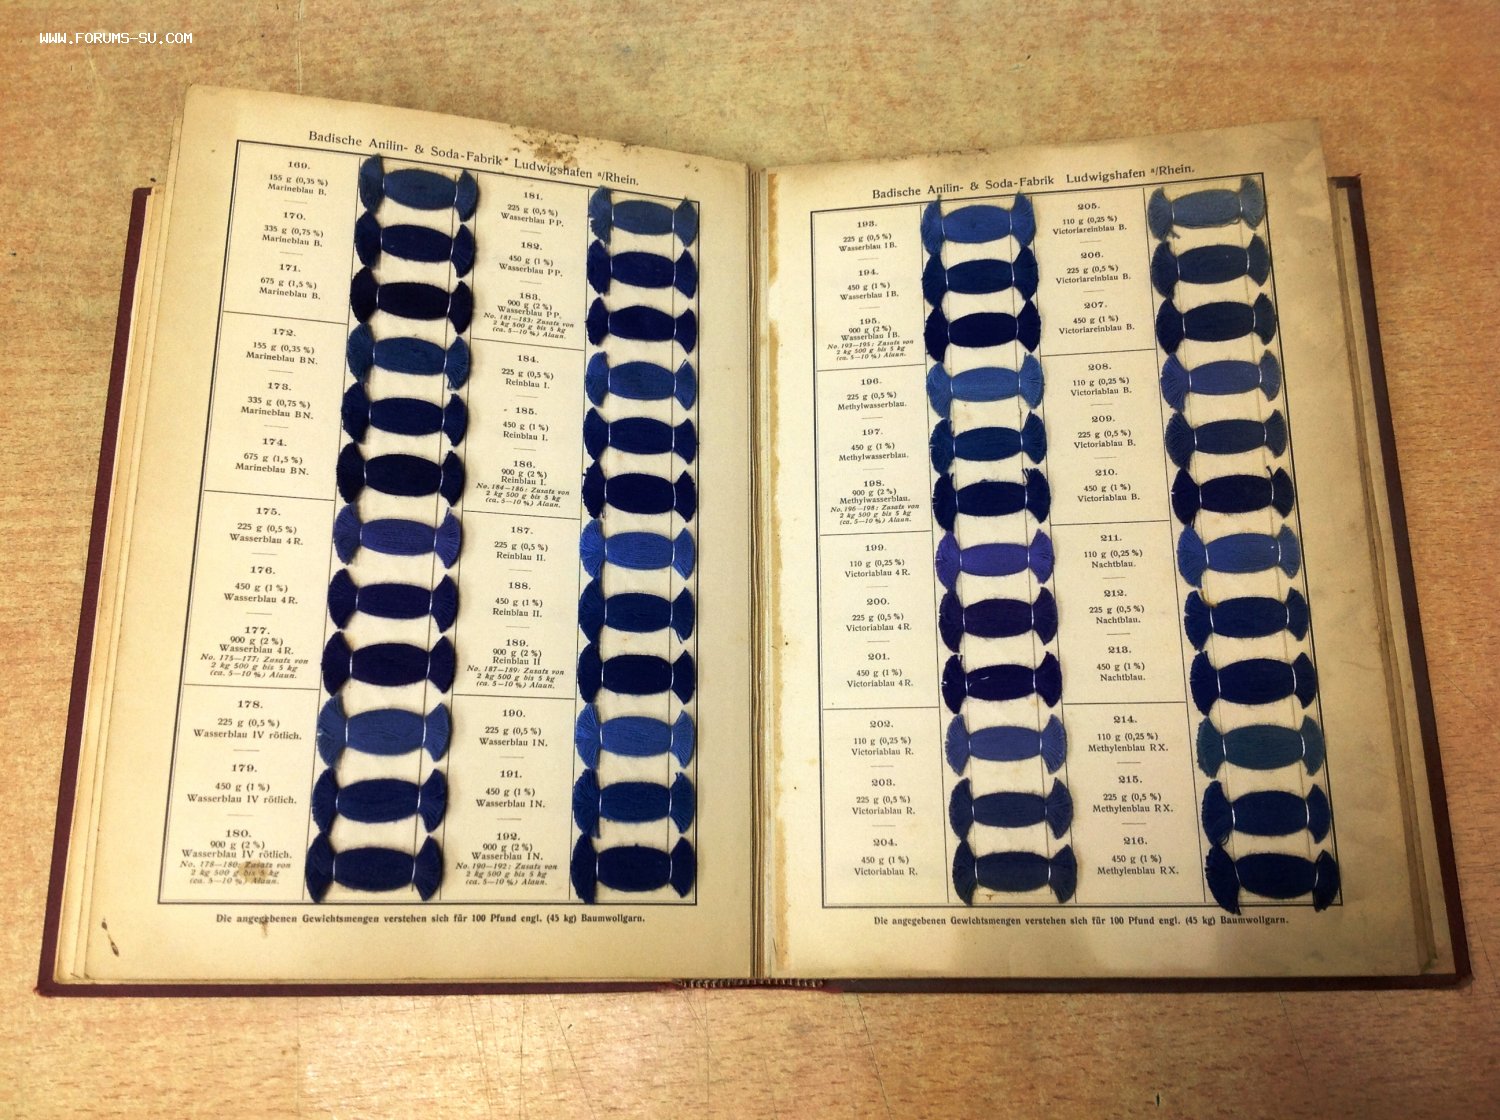 WWW.FORUMS-SU.COM
Badische Anilin- & Soda-Fabrik Ludwigshafen a/Rhein.
169.
155 g (0,35 %)
Marineblau B.
170.
335 g (0,75 %)
Marineblau B.
171.
675 g (1,5 %)
Marineblau B.
172.
155 g (0,35 %)
Marineblau BN.
173.
335 g (0,75 %)
Marineblau BN.
174.
675 g (1,5 %)
Marineblau BN.
175.
225 g (0,5 %)
Wasserblau 4R.
176.
450 g (1 %)
Wasserblau 4R.
177.
900 g (2 %)
Wasserblau 4R.
No. 175—177: Zusatz von
2 kg 500 g bis 5 kg
(ca. 5—10 %) Alaun.
178.
225 g (0,5 %)
Wasserblau IV rötlich.
179.
450 g (1 %)
Wasserblau IV rötlich.
180.
900 g (2 %)
Wasserblau IV rötlich.
No. 178—180: Zusatz von
2 kg 500 g bis 5 kg
(ca. 5—10 %) Alaun.
181.
225 g (0,5 %)
Wasserblau PP.
182.
450 g (1 %)
Wasserblau PP.
183.
900 g (2 %)
Wasserblau PP.
No. 181—183: Zusatz von
2 kg 500 g bis 5 kg
(ca. 5—10 %) Alaun.
184.
225 g (0,5 %)
Reinblau I.
185.
450 g (1 %)
Reinblau I.
186.
900 g (2 %)
Reinblau I.
No. 184—186: Zusatz von
2 kg 500 g bis 5 kg
(ca. 5—10 %) Alaun.
187.
225 g (0,5 %)
Reinblau II.
188.
450 g (1 %)
Reinblau II.
189.
900 g (2 %)
Reinblau II
No. 187—189: Zusatz von
2 kg 500 g bis 5 kg
(ca. 5—10 %) Alaun.
190.
225 g (0,5 %)
Wasserblau IN.
191.
450 g (1 %)
Wasserblau IN.
192.
900 g (2 %)
Wasserblau IN.
No. 190—192: Zusatz von
2 kg 500 g bis 5 kg
(ca. 5—10 %) Alaun.
Die angegebenen Gewichtsmengen verstehen sich für 100 Pfund engl. (45 kg) Baumwollgarn.
Badische Anilin- & Soda-Fabrik Ludwigshafen a/Rhein.
193.
225 g (0,5 %)
Wasserblau IB.
194.
450 g (1 %)
Wasserblau IB.
195.
900 g (2 %)
Wasserblau IB.
No. 193—195: Zusatz von
2 kg 500 g bis 5 kg
(ca. 5—10 %) Alaun.
196.
225 g (0,5 %)
Methylwasserblau.
197.
450 g (1 %)
Methylwasserblau.
198.
900 g (2 %)
Methylwasserblau.
No. 196—198: Zusatz von
2 kg 500 g bis 5 kg
(ca. 5—10 %) Alaun.
199.
110 g (0,25 %)
Victoriablau 4R.
200.
225 g (0,5 %)
Victoriablau 4R.
201.
450 g (1 %)
Victoriablau 4R.
202.
110 g (0,25 %)
Victoriablau R.
203.
225 g (0,5 %)
Victoriablau R.
204.
450 g (1 %)
Victoriablau R.
205.
110 g (0,25 %)
Victoriareinblau B.
206.
225 g (0,5 %)
Victoriareinblau B.
207.
450 g (1 %)
Victoriareinblau B.
208.
110 g (0,25 %)
Victoriablau B.
209.
225 g (0,5 %)
Victoriablau B.
210.
450 g (1 %)
Victoriablau B.
211.
110 g (0,25 %)
Nachtblau.
212.
225 g (0,5 %)
Nachtblau.
213.
450 g (1 %)
Nachtblau.
214.
110 g (0,25 %)
Methylenblau RX.
215.
225 g (0,5 %)
Methylenblau RX.
216.
450 g (1 %)
Methylenblau RX.
Die angegebenen Gewichtsmengen verstehen sich für 100 Pfund engl. (45 kg) Baumwollgarn.